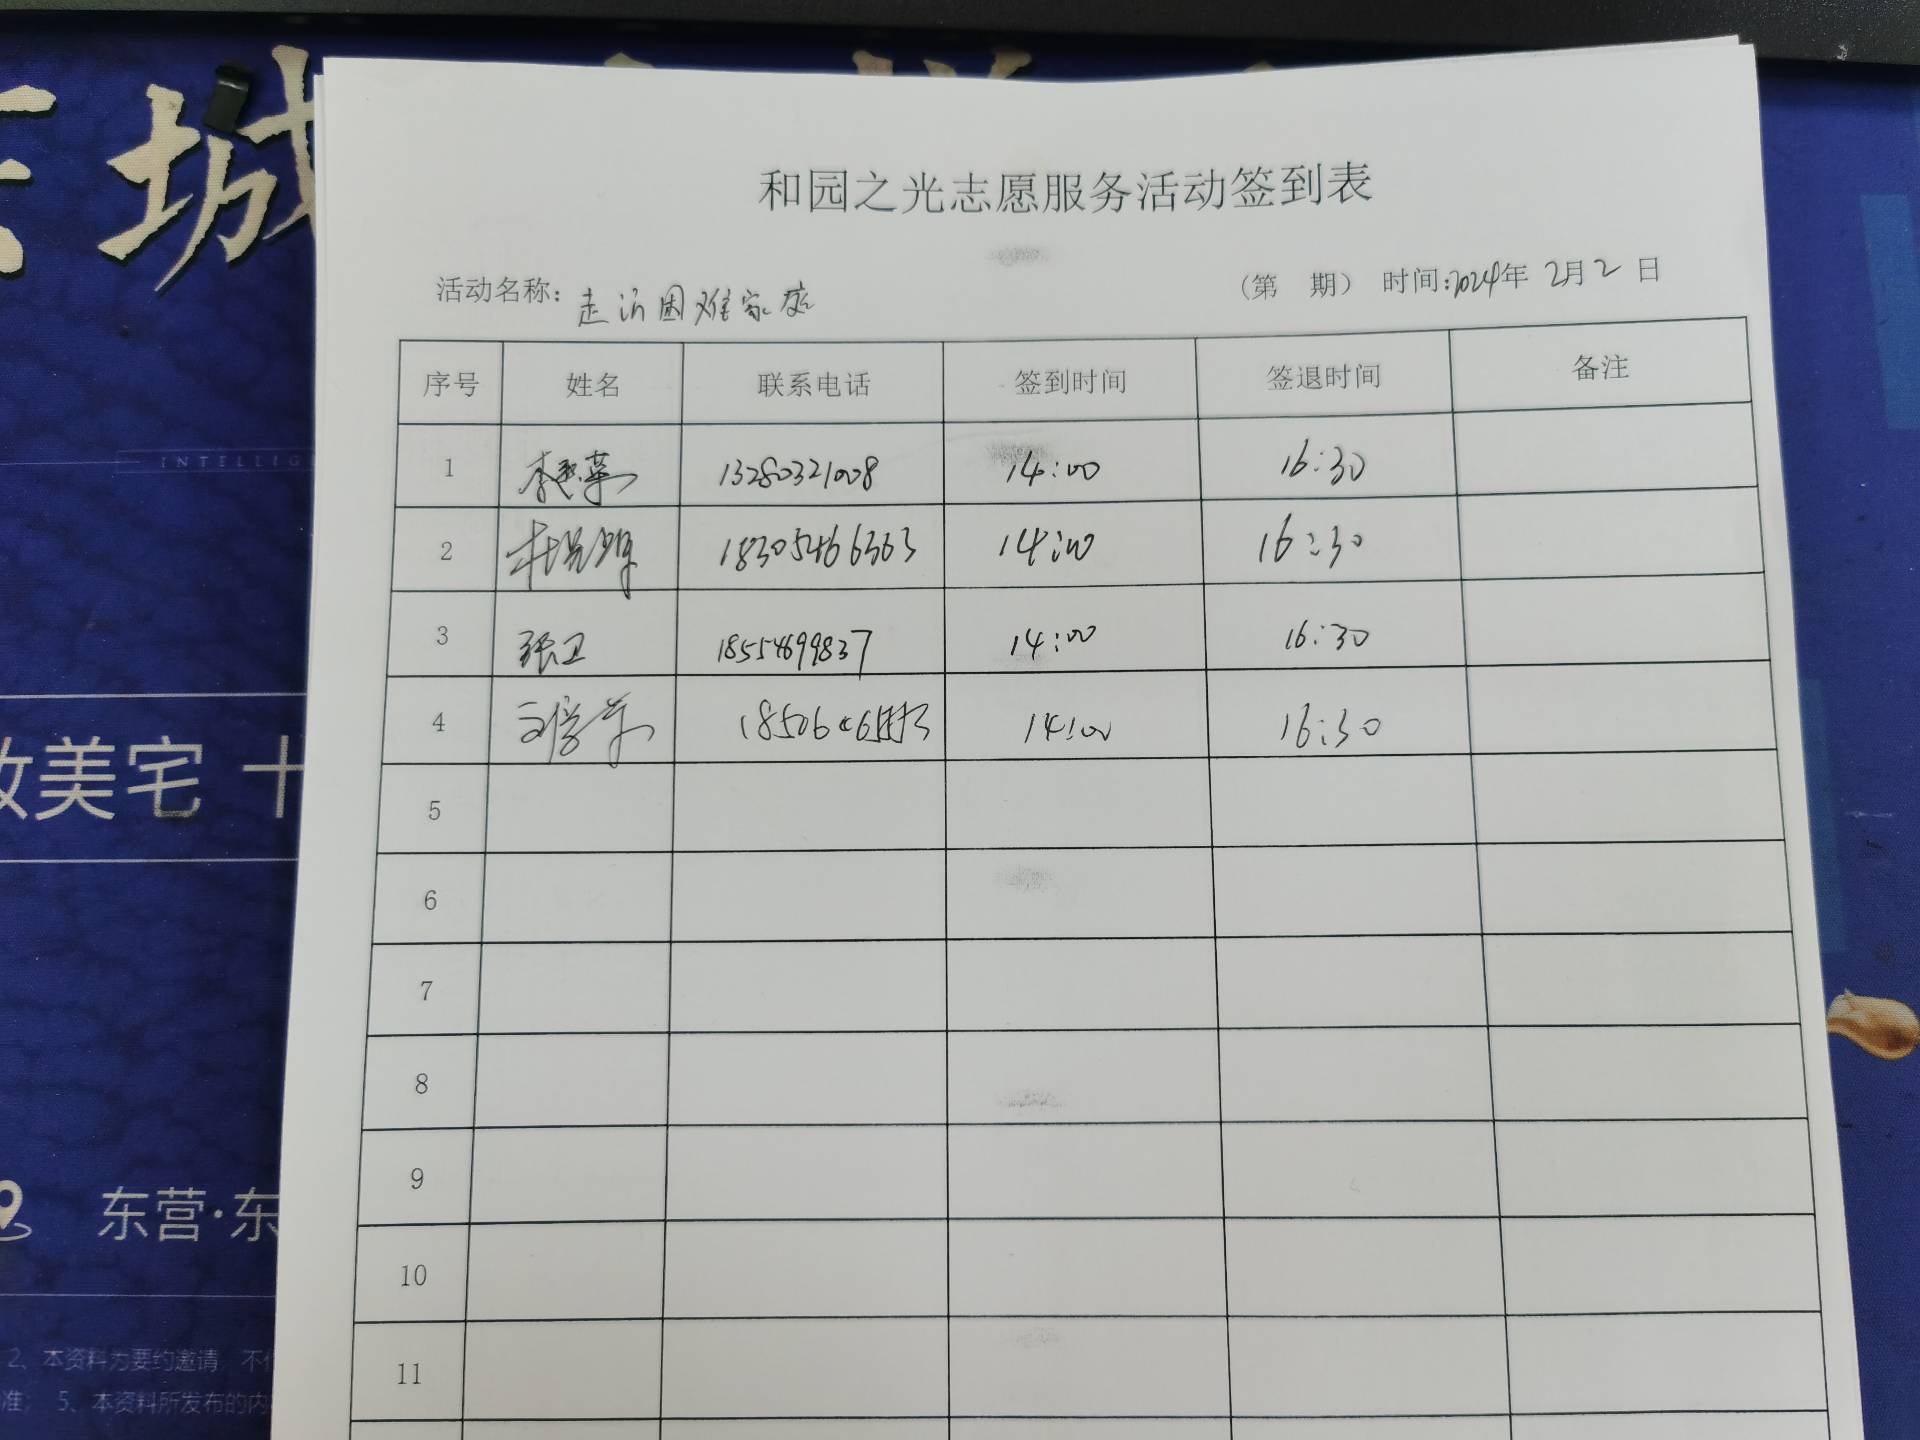 城
INTELLIG
美宅 十
东营·东
2、本资料为要约邀请,不
准; 5、本资料所发布的内
和园之光志愿服务活动签到表
活动名称: 走访困难家庭 (第 期) 时间:2024年 2月2 日
序号 姓名 联系电话 签到时间 签退时间 备注
1 13280321008 14:00 16:30
2 18305466363 14:00 16:30
3 张卫 18554699837 14:00 16:30
4 14:00 16:30
5
6
7
8
9
10
11